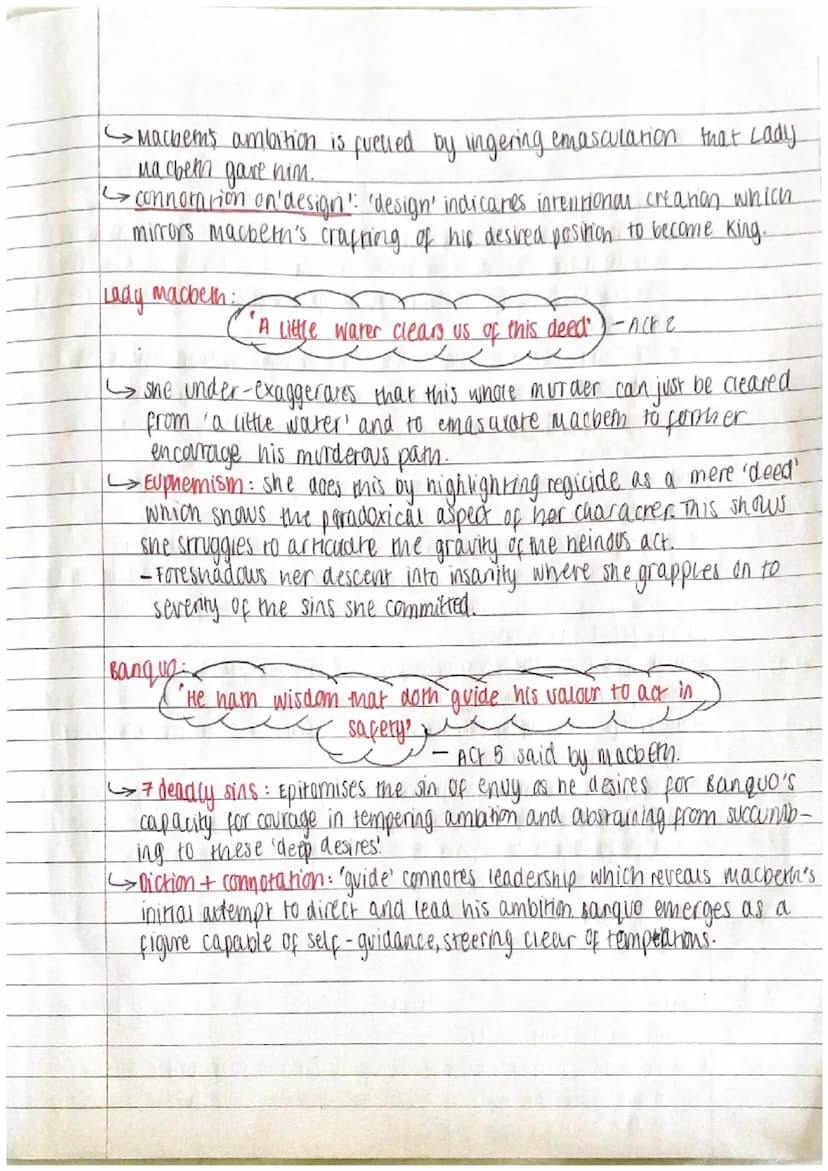 ↳ Macbeth's ambition is fuelled by lingering emasculation that Lady
Macbeth gave him.
↳ connotation on 'design': 'design' indicates intentional creation which
mirrors Macbeth's crafting of his desired position to become King.
Lady Macbeth:
'A little water clears us of this deed' - Act 2
↳ she under-exaggerates that this whole murder can just be cleared
from 'a little water' and to emasulate Macbeth to further
encourage his murderous path.
↳ Euphemism: she does this by highlighting regicide as a mere 'deed'
which shows the paradoxical aspect of her character. This shows
she struggles to articulate the gravity of the heinous act.
- Foreshadows her descent into insanity where she grapples on to
severity of the sins she committed.
Banquo:
'He hath wisdom that doth guide his valour to act in
safety'
- Act 5 said by macbeth.
↳ 7 deadly sins: Epitomises the sin of envy as he desires for Banquo's
capacity for courage in tempering ambition and abstaining from succumb-
ing to these 'deep desires'.
↳ Diction + connotation: 'guide' connotes leadership which reveals macbeth's
initial attempt to direct and lead his ambition. Banquo emerges as a
figure capable of self-guidance, steering clear of temptations.